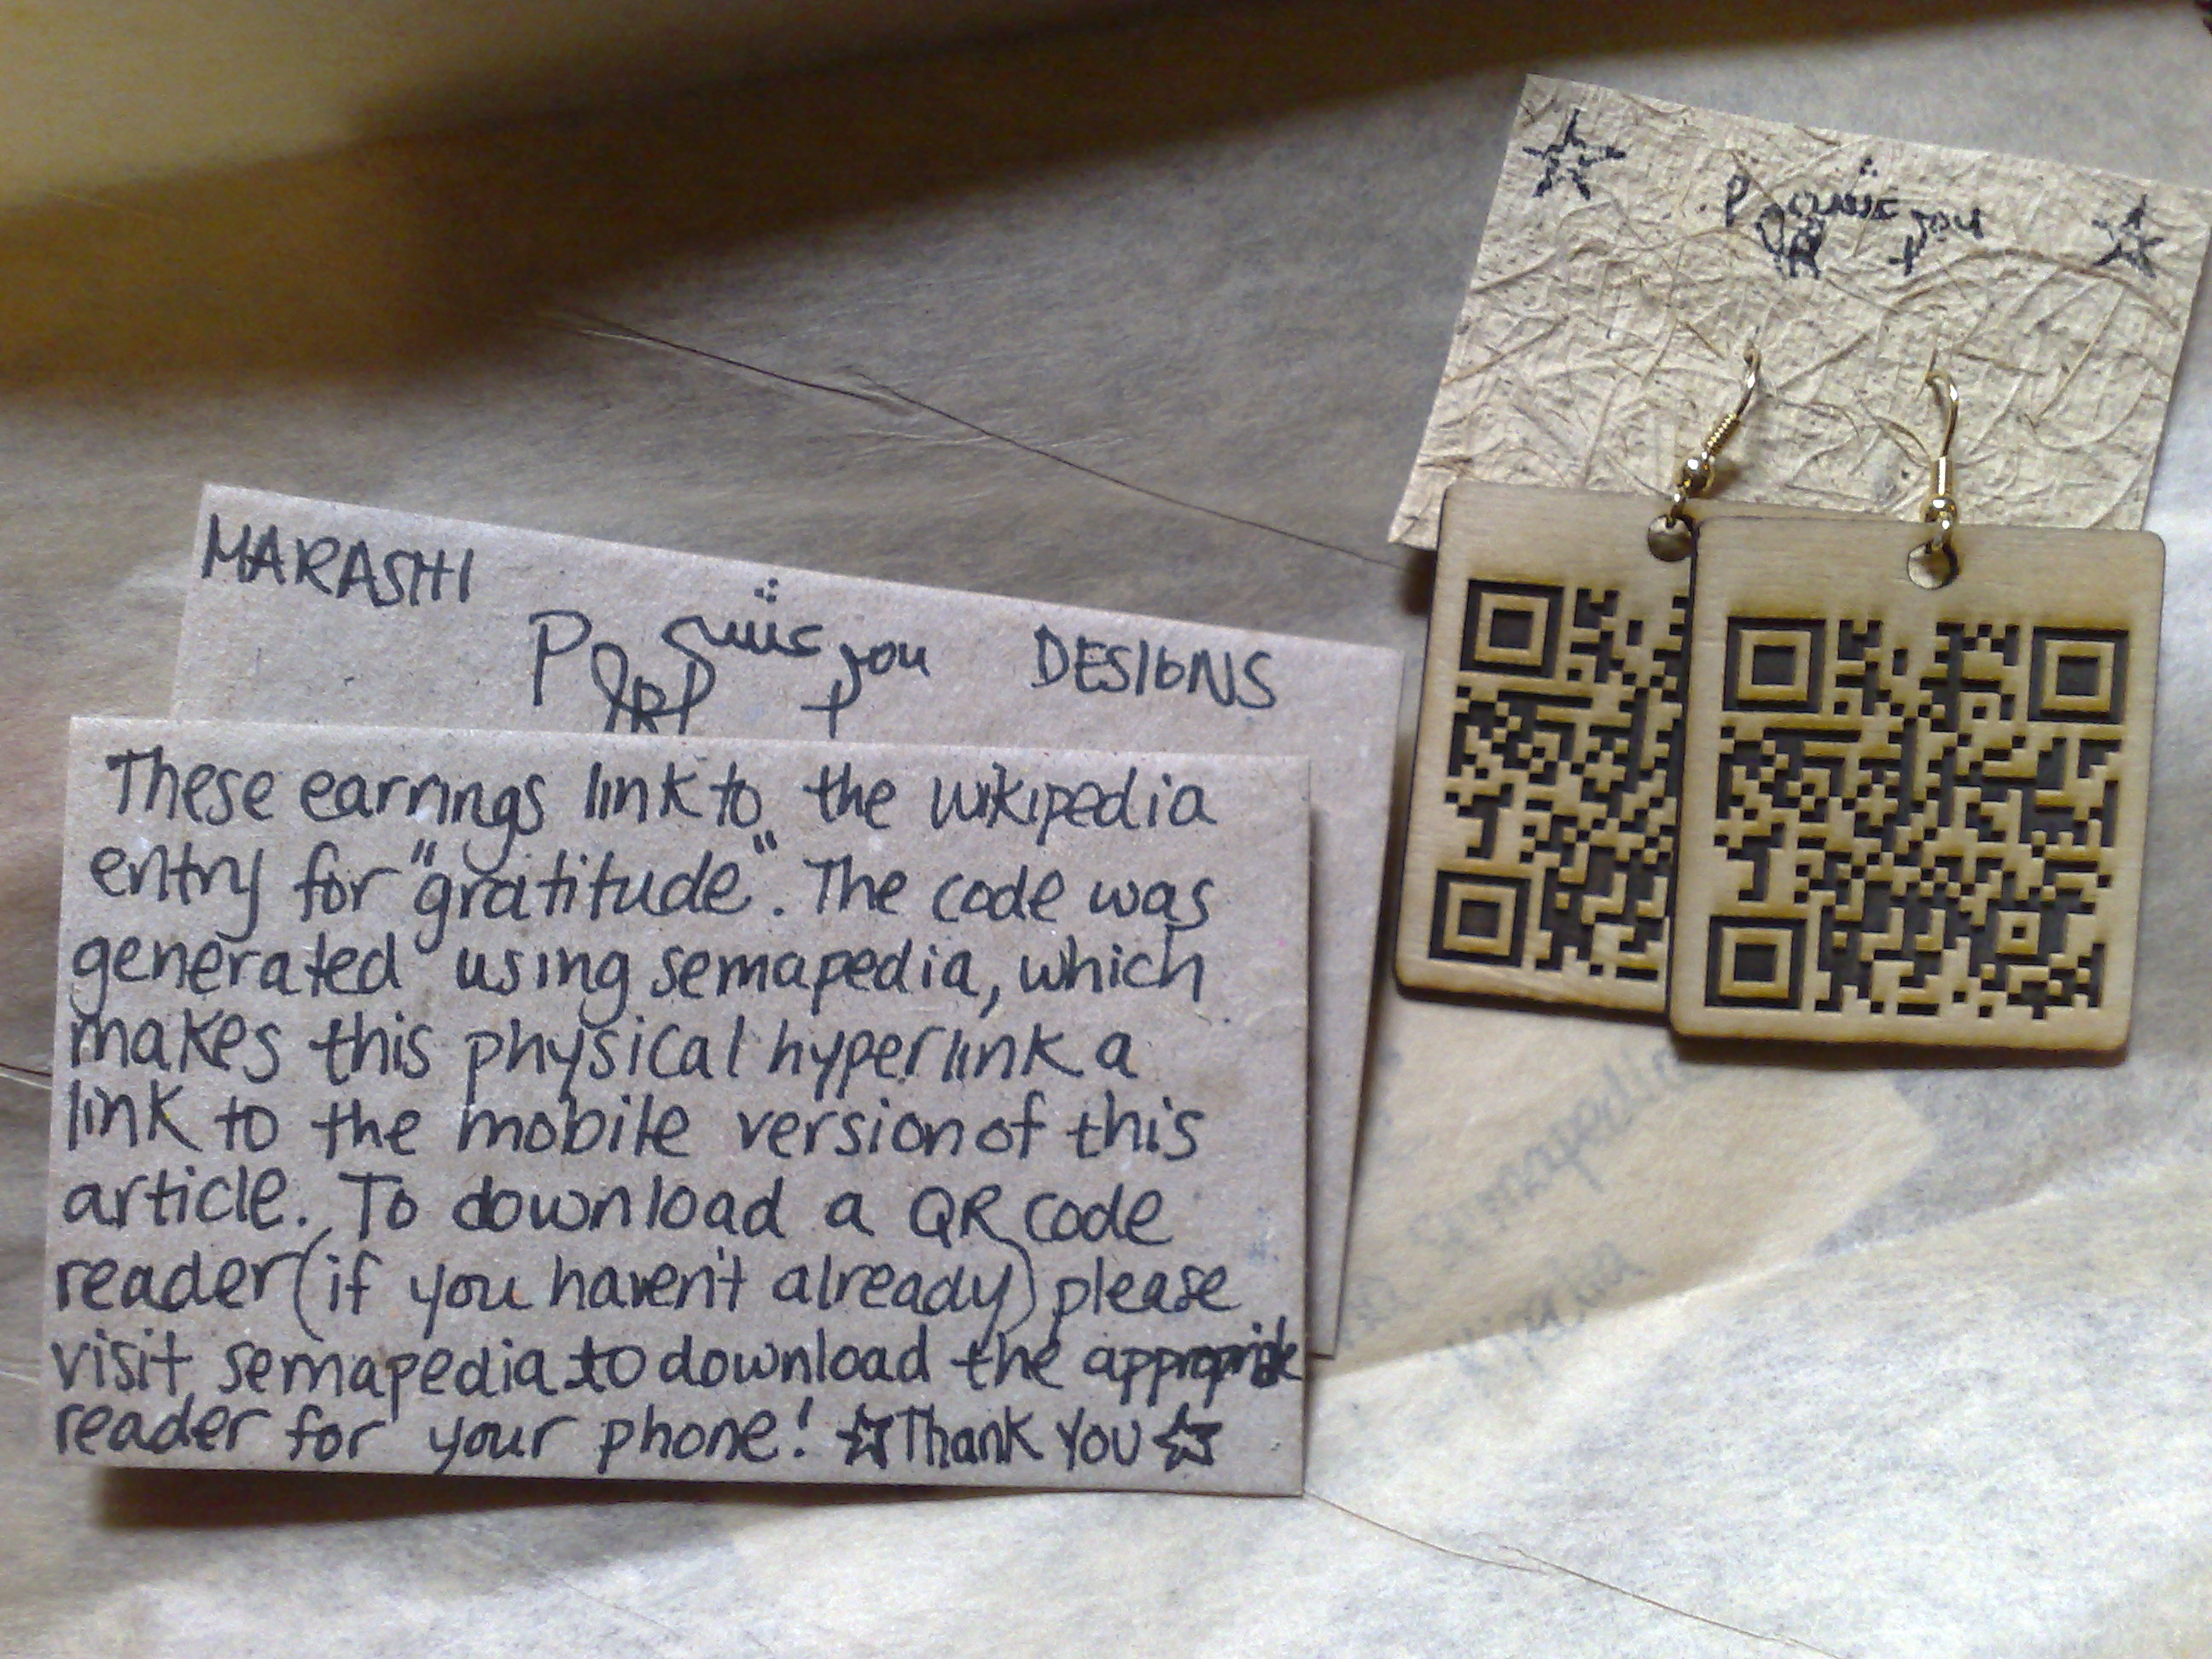 MARASHI
DESIGNS
These earrings link to the wikipedia
entry for "gratitude". The code was
generated using semapedia, which
makes this physical hyperlink a
link to the mobile version of this
article. To download a QR code
reader (if you haven't already) please
visit semapedia to download the appropriate
reader for your phone! ☆Thank You☆